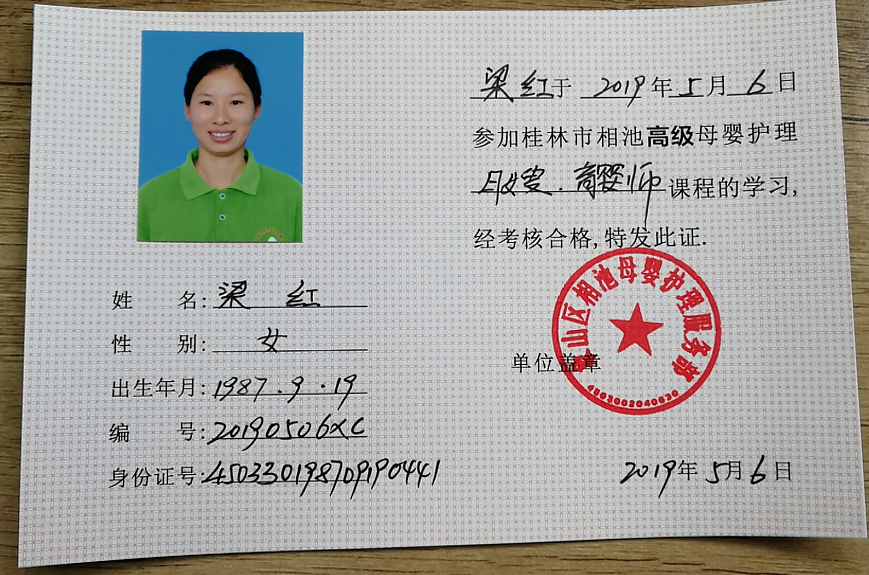 姓 名: 梁 红
性 别: 女
出生年月: 1987.9.19
编 号: 20190506XC
身份证号: 450330198709190441
梁红于 2019 年 5 月 6 日
参加桂林市相池高级母婴护理
月嫂.育婴师 课程的学习,
经考核合格,特发此证.
山区相池母婴护理服务部
单位盖章
4503002040630
2019年5月6日